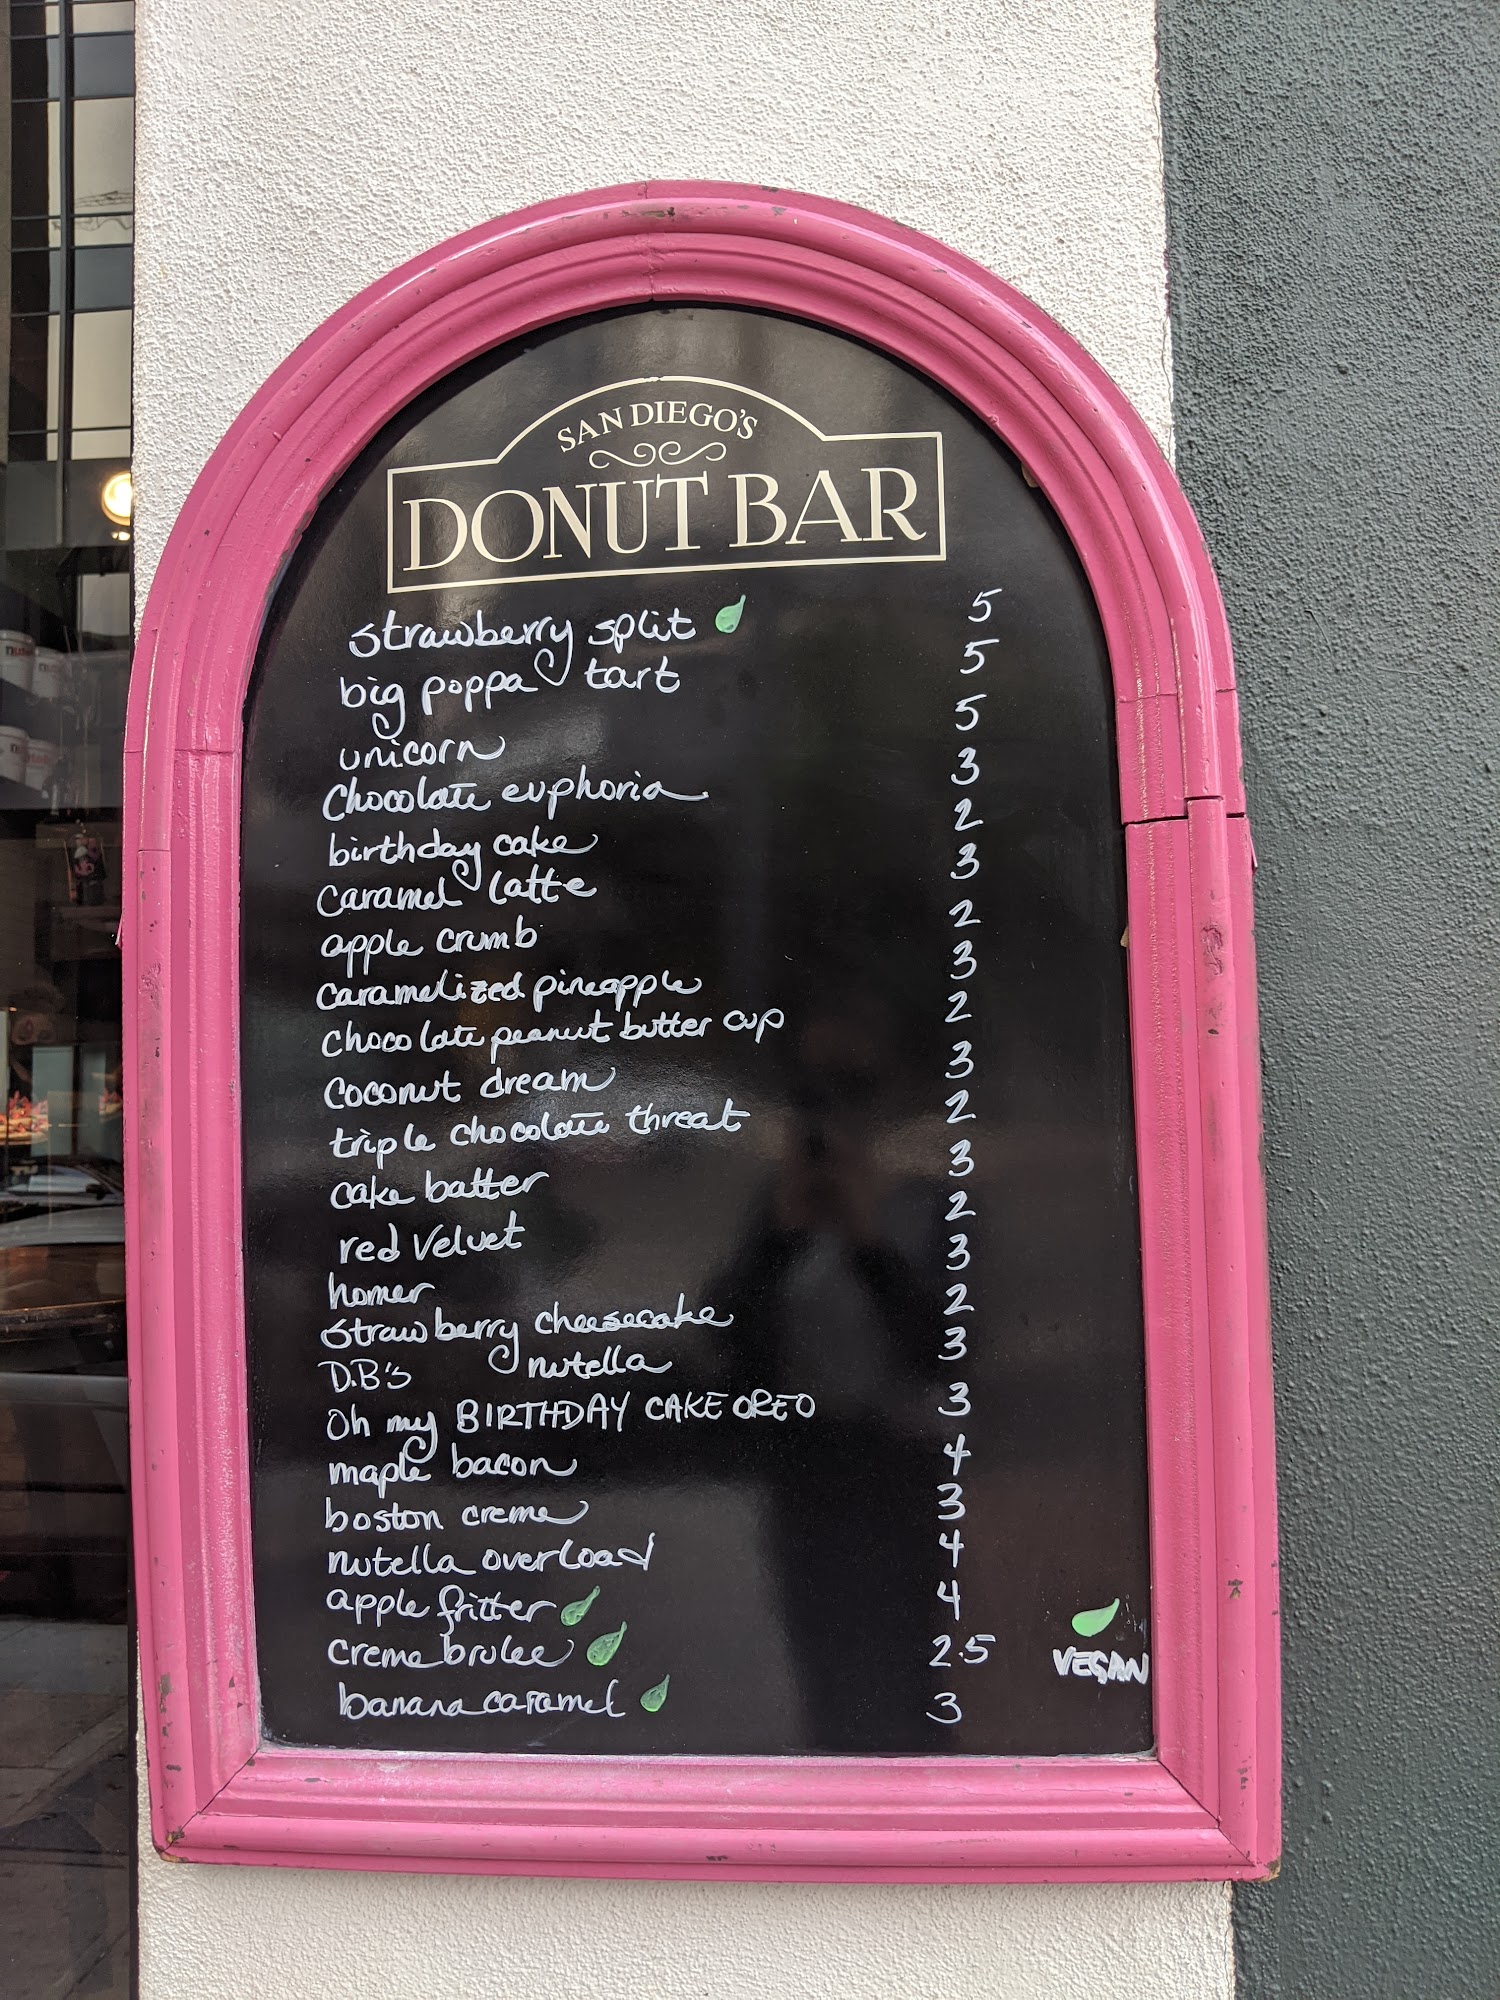 SAN DIEGO'S
DONUT BAR
strawberry split 5
big poppa tart 5
unicorn 5
Chocolate euphoria 3
birthday cake 2
caramel latte 3
apple crumb 2
caramelized pineapple 3
chocolate peanut butter cup 2
coconut dream 3
triple chocolate threat 2
cake batter 3
red velvet 2
homer 3
strawberry cheesecake 2
D.B's nutella 3
Oh my BIRTHDAY CAKE OREO 3
maple bacon 4
boston creme 3
nutella overload 4
apple fritter 4
creme brulee 2.5
banana caramel 3
VEGAN